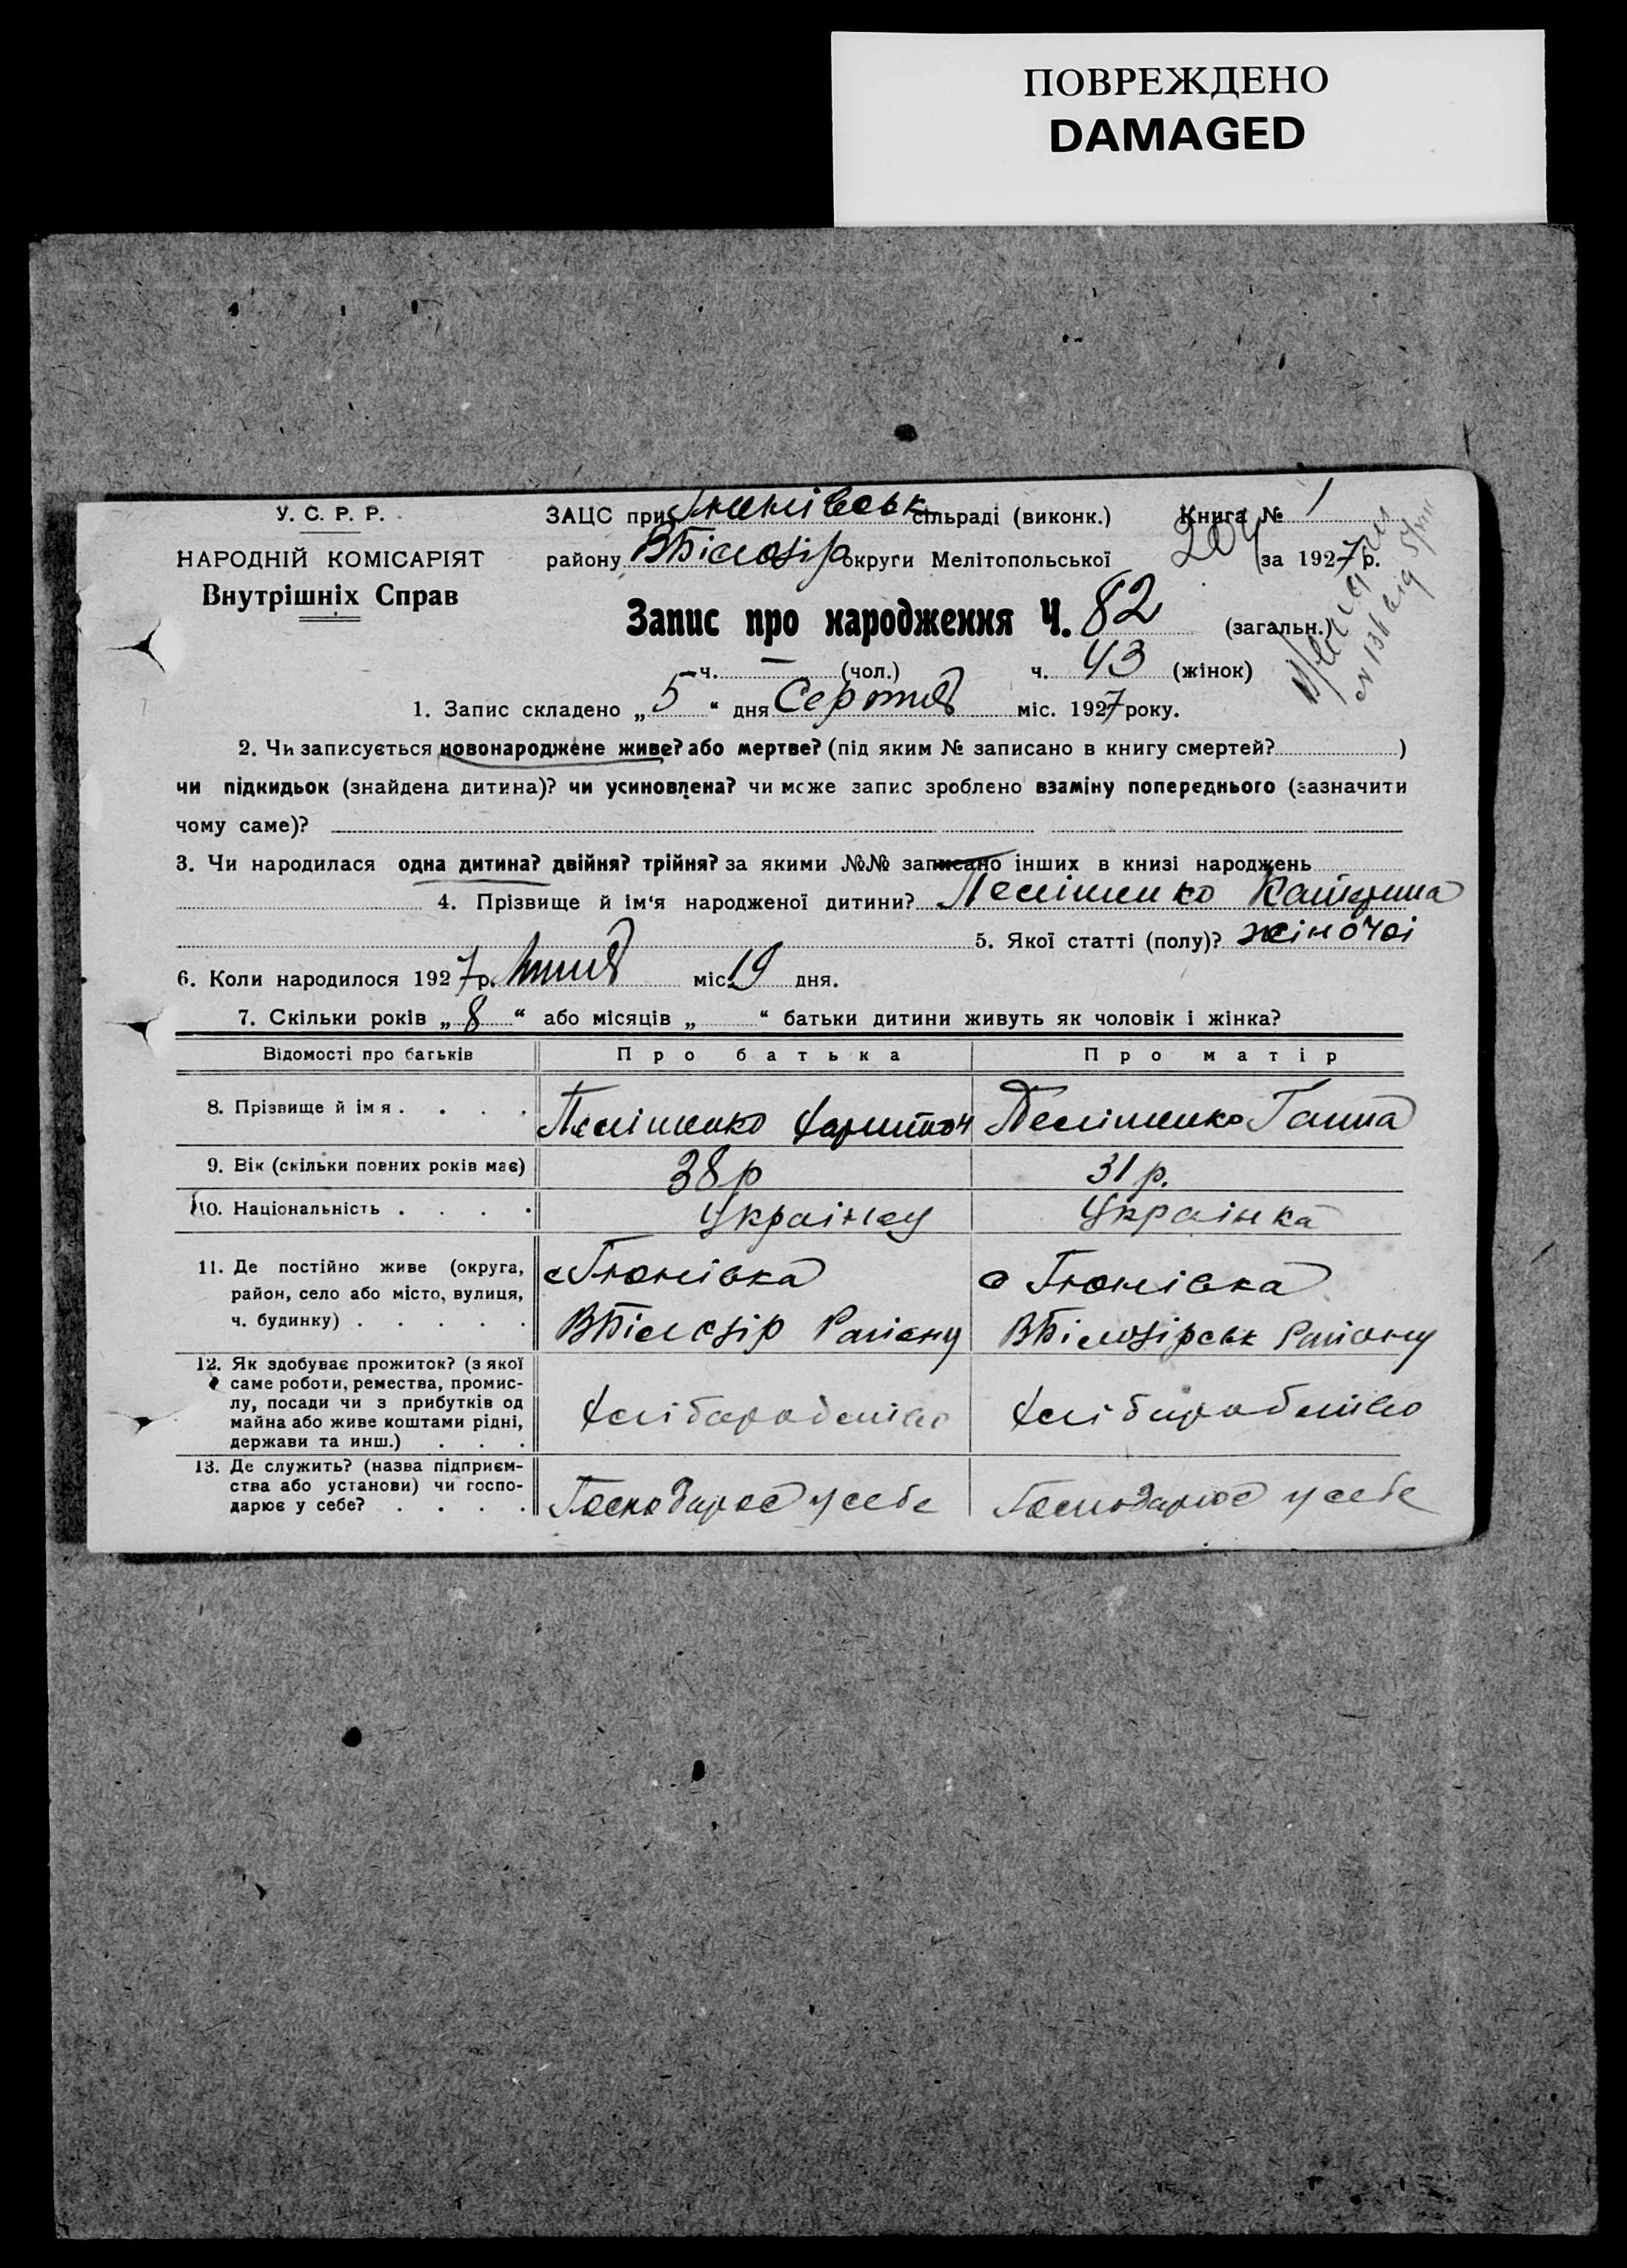 ПОВРЕЖДЕНО
DAMAGED
У. С. Р. Р.
НАРОДНІЙ КОМІСАРІЯТ
Внутрішніх Справ
ЗАЦС при Гюнівськ сільраді (виконк.) Книга № 1
району ВБілозір округи Мелітопольської за 1927 р.
204
Запис про народження Ч. 82 (загальн.)
N 136 від 5/VIII
ч. — (чол.) ч. 43 (жінок)
1. Запис складено „ 5 “ дня Серпня міс. 1927 року.
2. Чи записується новонароджене живе? або мертве? (під яким № записано в книгу смертей? )
чи підкидьок (знайдена дитина)? чи усиновлена? чи може запис зроблено взаміну попереднього (зазначити
чому саме)?
3. Чи народилася одна дитина? двійня? трійня? за якими №№ записано інших в книзі народжень
4. Прізвище й ім‘я народженої дитини? Пелішенко Катерина
5. Якої статті (полу)? жіночоі
6. Коли народилося 1927 р. Липня міс. 19 дня.
7. Скільки років „ 8 “ або місяців „ “ батьки дитини живуть як чоловік і жінка?
Відомості про батьків Про батька Про матір
8. Прізвище й ім я . . . . Пелішенко Харитон Пелішенко Ганна
9. Вік (скільки повних років має) 38 р 31 р.
10. Національність . . . . Украінец Украінка
11. Де постійно живе (округа,
район, село або місто, вулиця,
ч. будинку) . . . . .
с Гюнівка
ВБілозір Раиону
с Гюнівка
ВБілозірськ Раиону
12. Як здобуває прожиток? (з якої
саме роботи, ремества, промис-
лу, посади чи з прибутків од
майна або живе коштами рідні,
держави та инш.) . . .
Хліборобство
Хліборобство
13. Де служить? (назва підприєм-
ства або установи) чи госпо-
дарює у себе? . . . .
Господарює у себе Господарює у себе